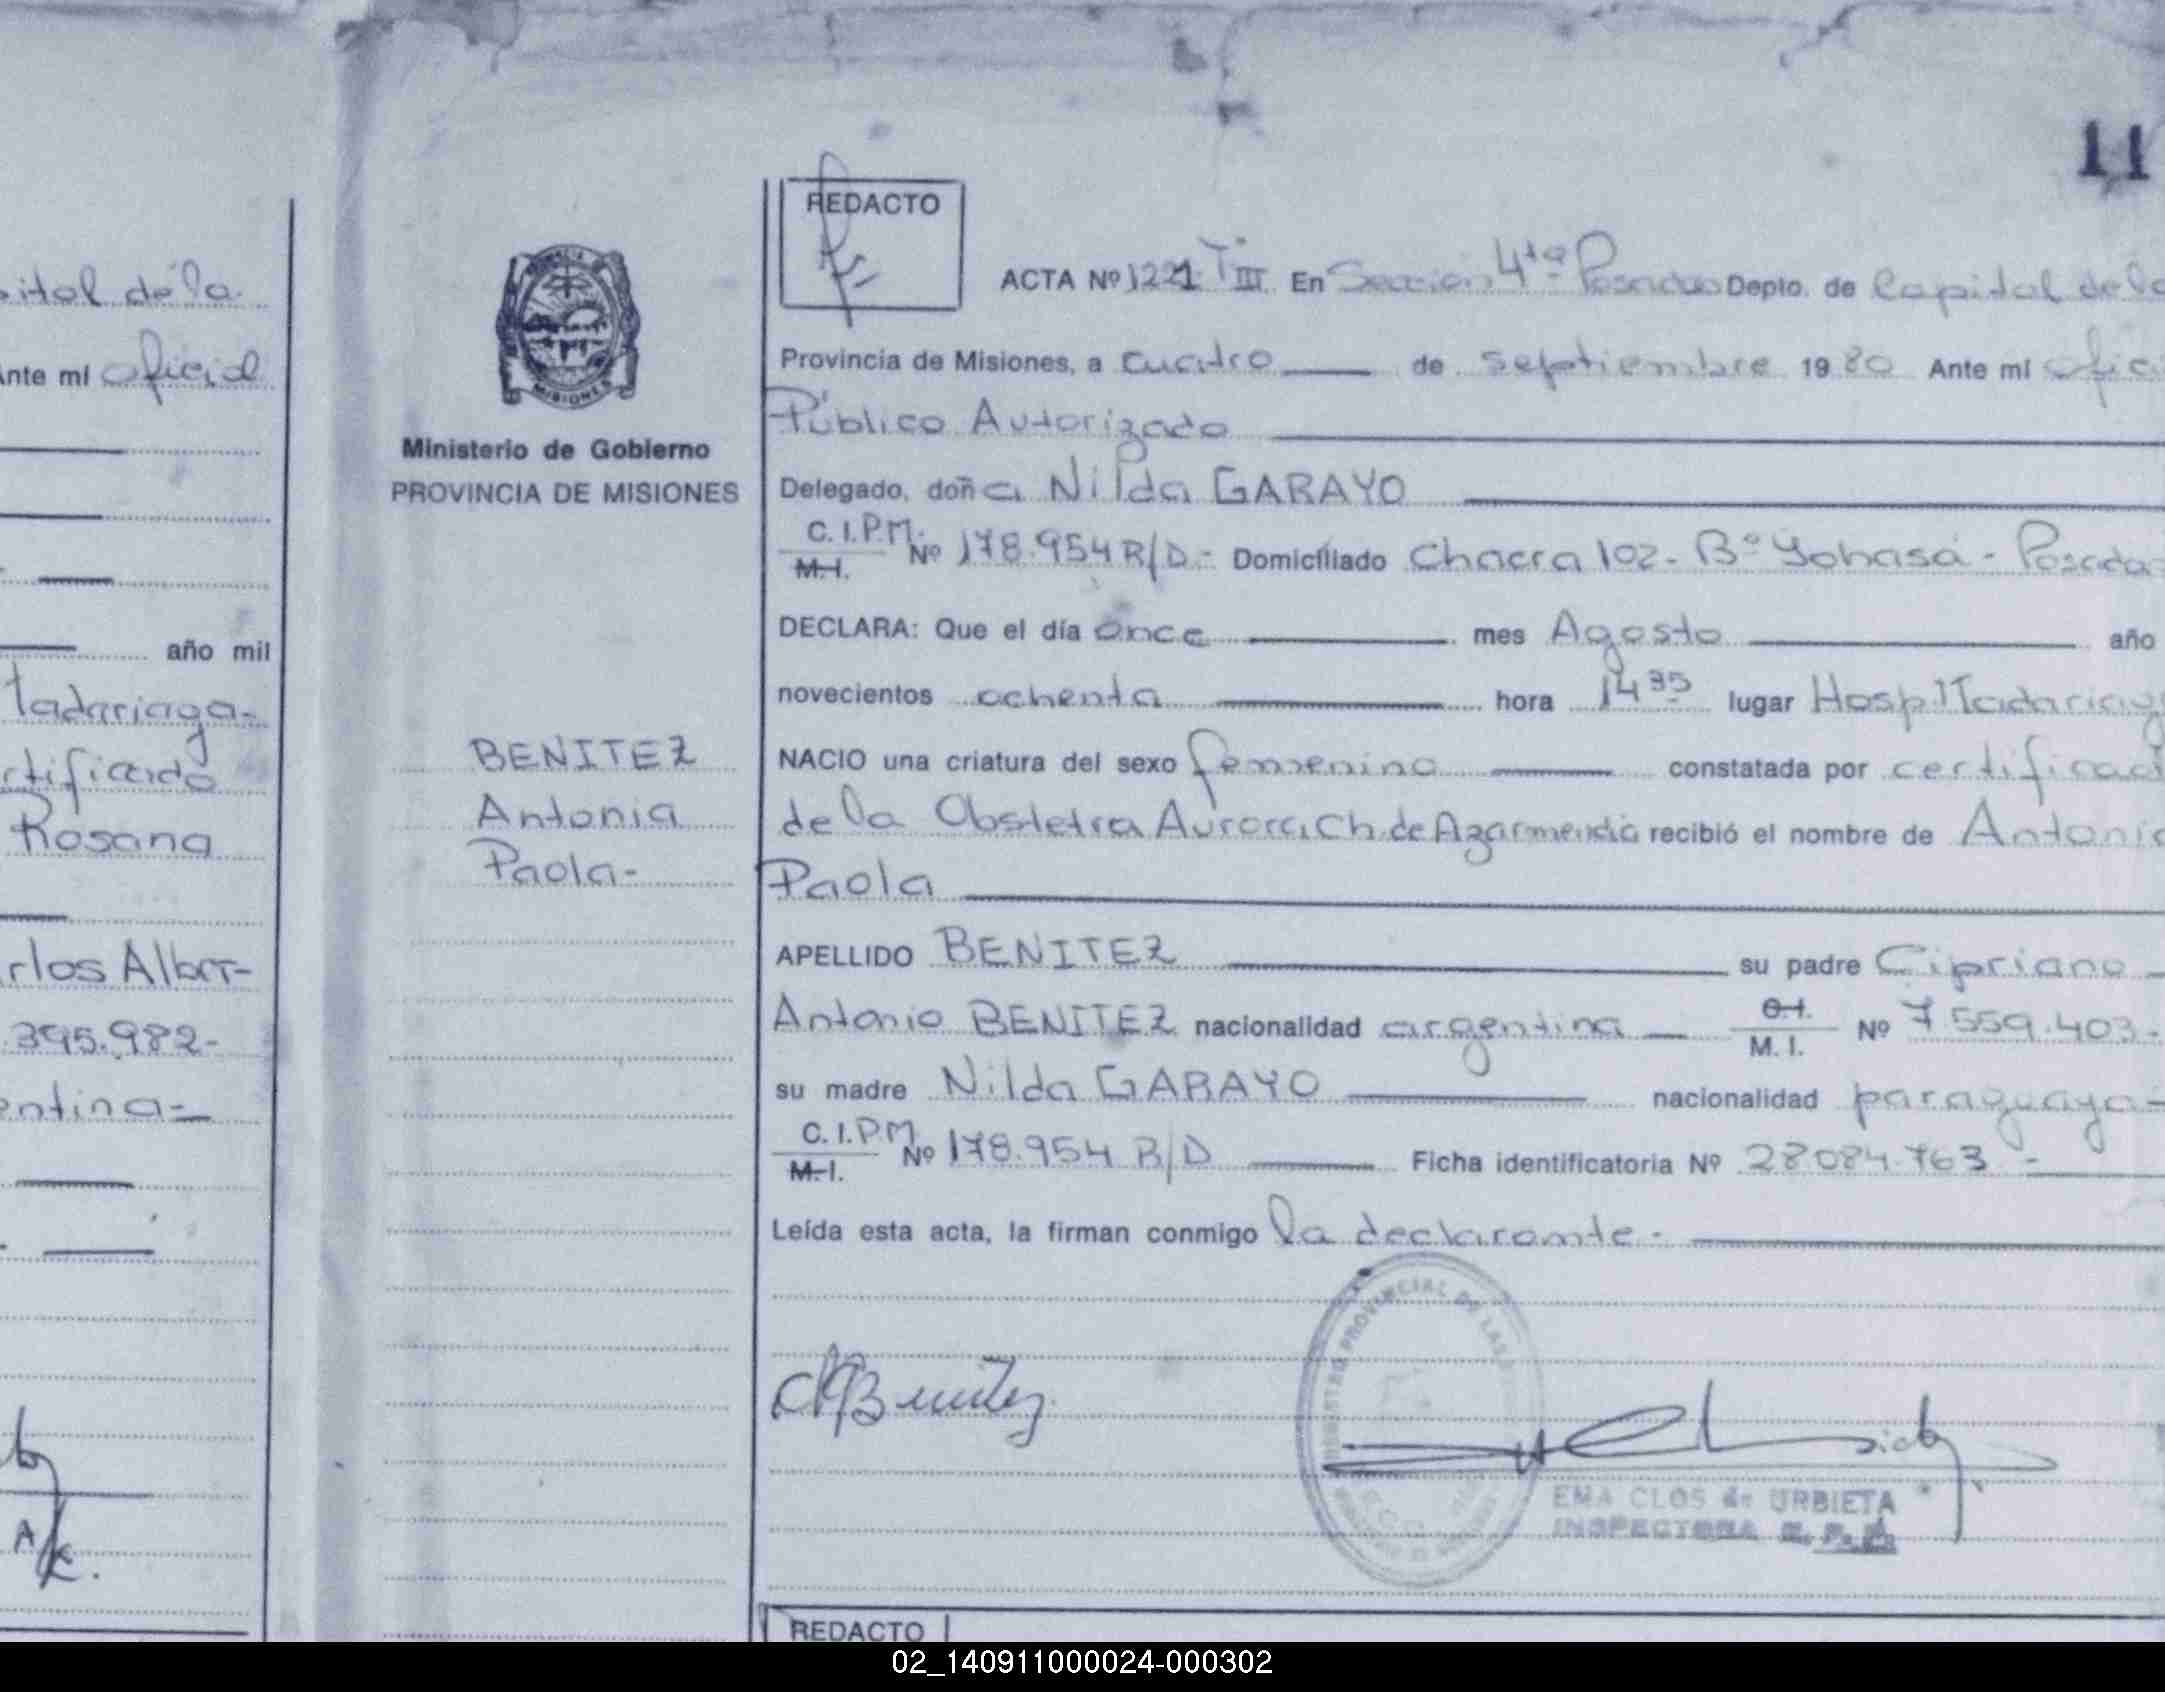 11
REDACTO
ACTA Nº 1221 T: III En Sección 4ta Posadas Depto. de Capital de la
Provincia de Misiones, a cuatro de septiembre 1980 Ante mí ofici
Público Autorizado
Delegado, doña Nilda GARAYO
C.I.P.M. M.I. Nº 178.954 R/D.- Domiciliado Chacra 102- Bº Yohasá - Posadas
DECLARA: Que el día once mes Agosto año
novecientos ochenta hora 14 35 lugar Hosp. Madariag
NACIO una criatura del sexo femenino constatada por certificad
de la Obstetra Aurora Ch. de Azarmendia recibió el nombre de Antonia
Paola
APELLIDO BENITEZ su padre Cipriano
Antonio BENITEZ nacionalidad argentina O.I. M.I. Nº 7.559.403-
su madre Nilda GARAYO nacionalidad paraguaya-
C.I.P.M. M.I. Nº 178.954 R/D Ficha identificatoria Nº 28084.763 -
Leída esta acta, la firman conmigo la declarante-
C A Benitez
EMA CLOS de URBIETA
INSPECTORA R. P. P.
REDACTO
PROVINCIA DE
MISIONES
Ministerio de Gobierno
PROVINCIA DE MISIONES
BENITEZ
Antonia
Paola-
REGISTRO PROVINCIAL DE LAS
pital de la
Ante mí oficial
año mil
Madariaga-
rtificado
Rosana
rlos Alber-
.395.982-
entina-
02_140911000024-000302